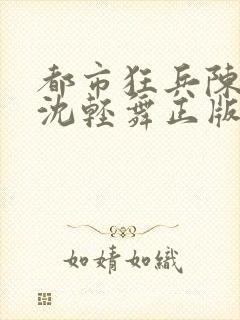 都市狂兵陳
沈輕舞正版
如婧如織